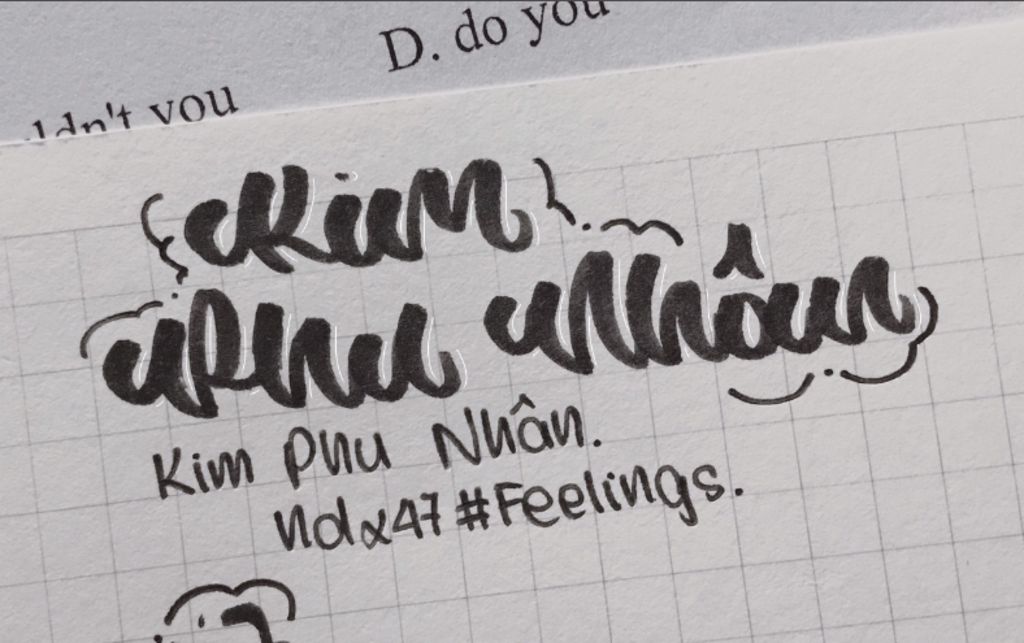 D. do you
ldn't you
Kim
Phu Nhân
Kim Phu Nhân.
ndx47 #Feelings.